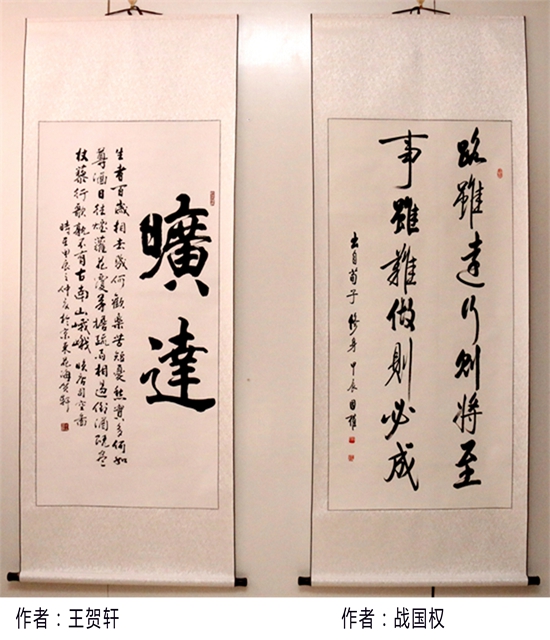 曠達
生者百歲相去幾何歡樂苦短憂愁實多何如
尊酒日往煙蘿花覆茅檐疏雨相過倒酒既盡
杖藜行歌孰不有古南山峨峨 晚唐司空圖
時在甲辰之仲夏於京東花海賀軒
路雖遠行則將至
事雖難做則必成
出自荀子修身 甲辰 国權
作者：王贺轩
作者：战国权